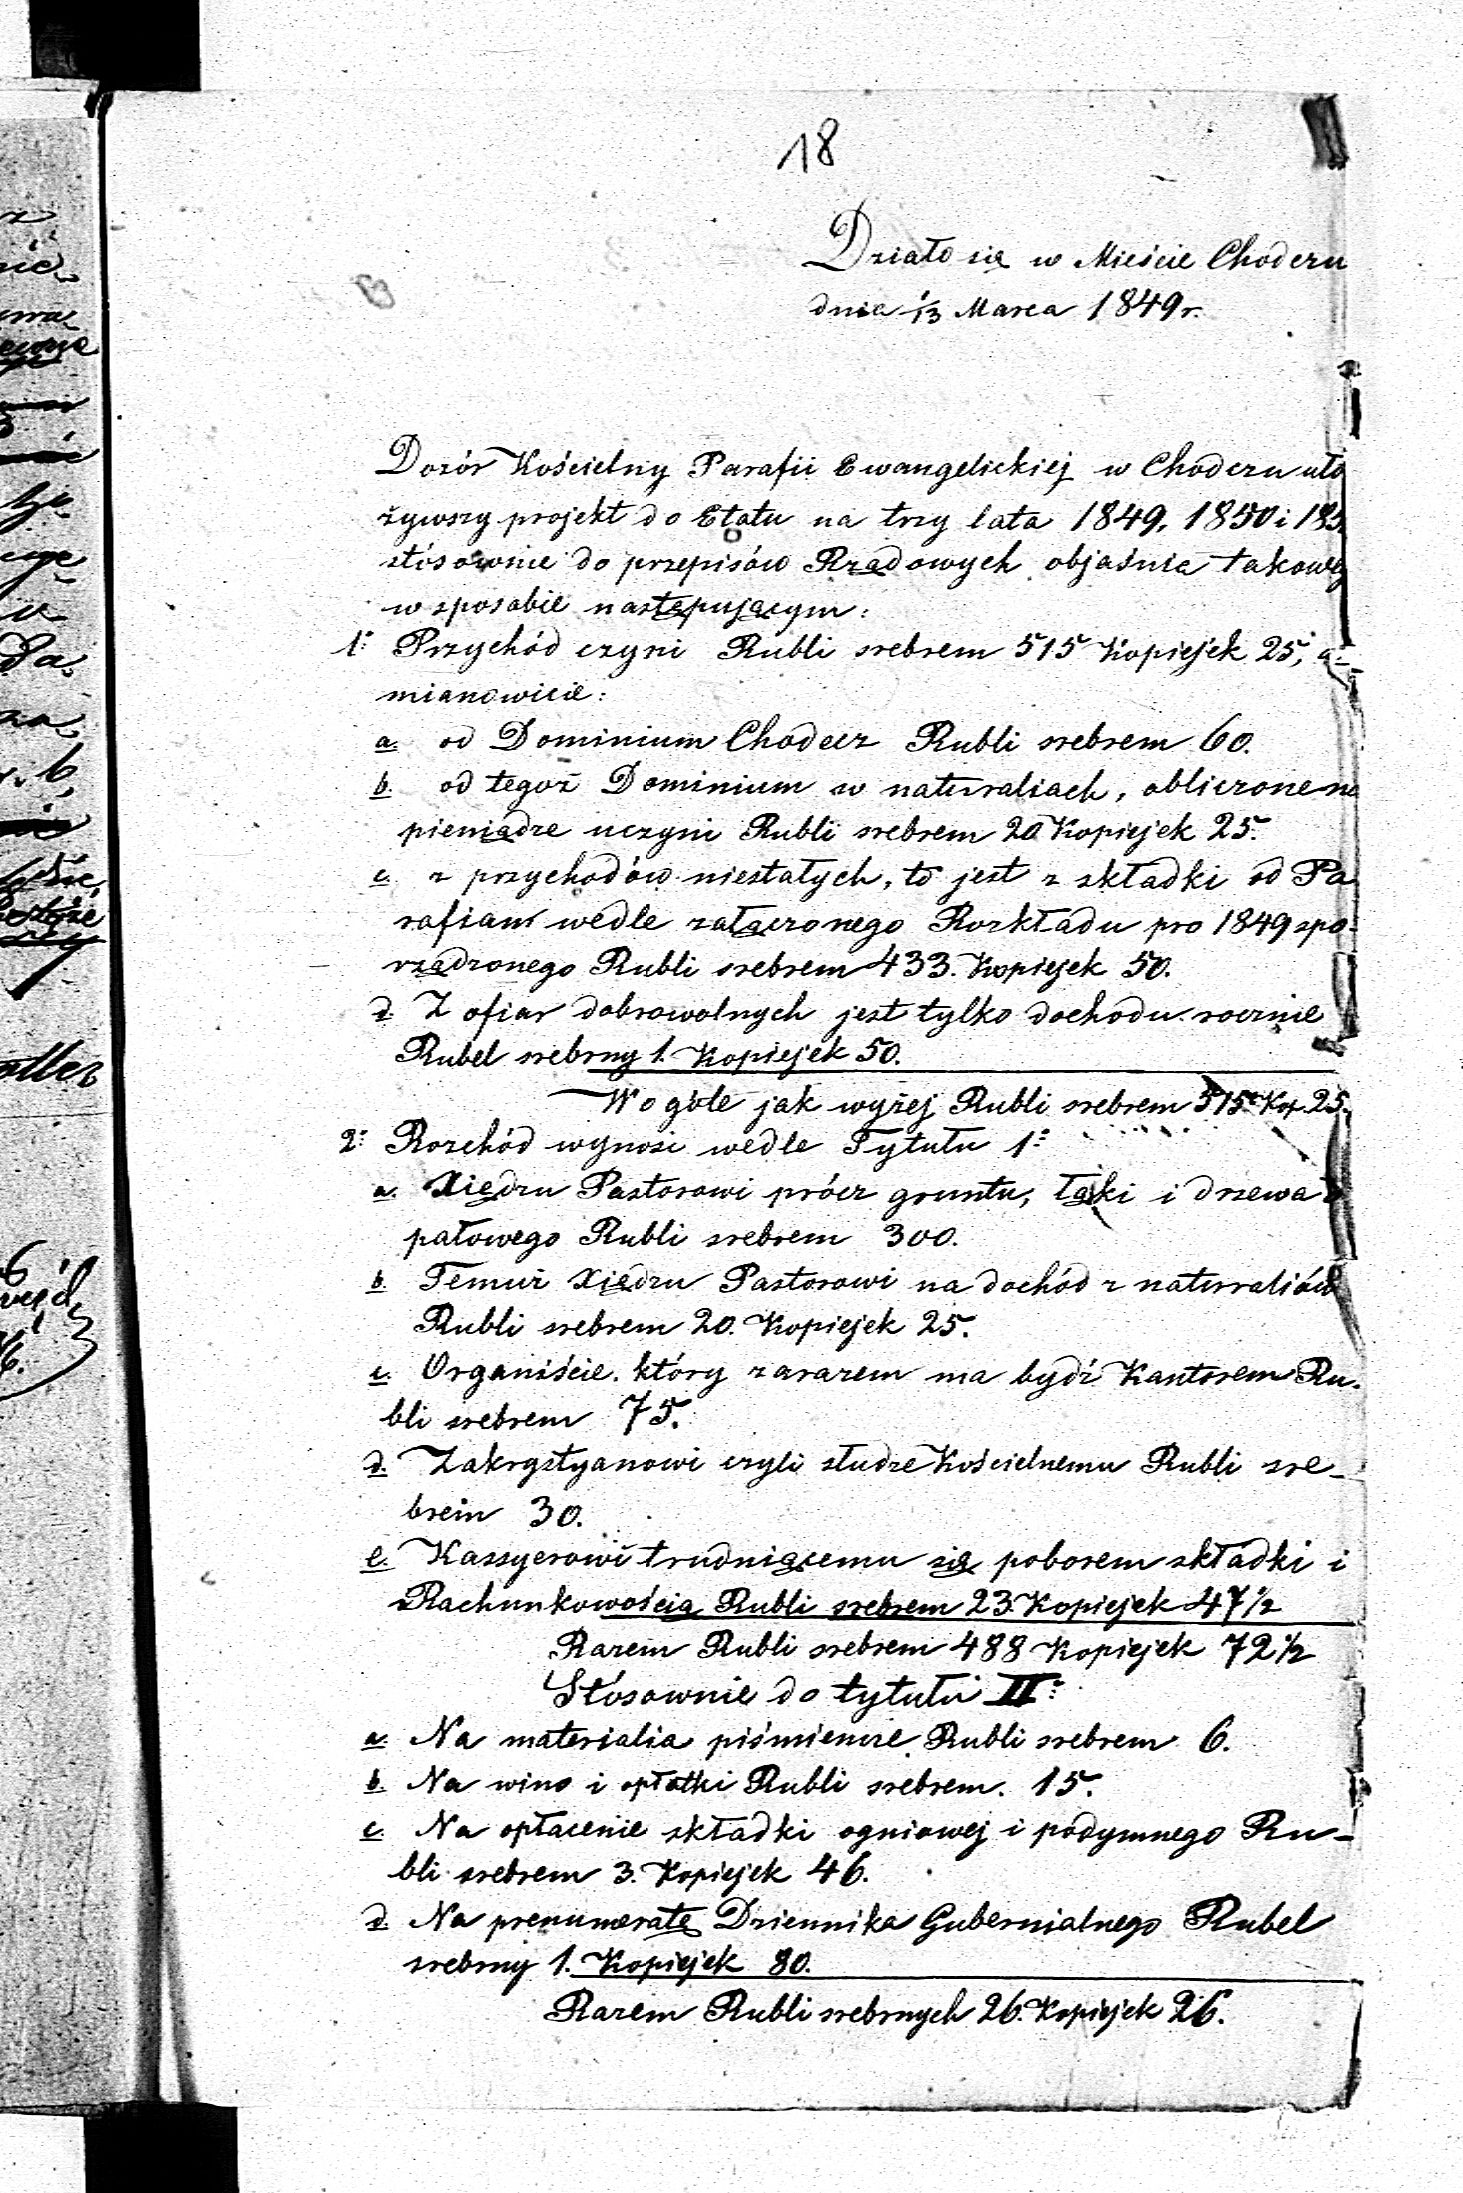 18
Działo się w Mieście Chodczu
dnia 1/13 Marca 1849 r.
Dozór Kościelny Parafii Ewangelickiej w Chodczu uło
żywszy projekt do Etatu na trzy lata 1849, 1850 i 185
stósownie do przepisów Rządowych objaśnia takowy
w sposobie następującym:
1: Przychód czyni Rubli srebrem 515 Kopiejek 25, a
mianowicie:
a. od Dominium Chodecz Rubli srebrem 60.
b. od tegoż Dominium w naturaliach, obliczone na
pieniądze uczyni Rubli srebrem 20 Kopiejek 25.
c. z przychodów niestałych, to jest z składki od Pa
rafian wedle załączonego Rozkładu pro 1849 spo-
rządzonego Rubli srebrem 433. Kopiejek 50.
d. Z ofiar dobrowolnych jest tylko dochodu rocznie
Rubel srebrny 1. Kopiejek 50.
W ogóle jak wyżej Rubli srebrem 515 Kop. 25.
2: Rozchód wynosi wedle Tytułu 1:
a. Xiędzu Pastorowi prócz gruntu, łąki i drzewa o
pałowego Rubli srebrem 300.
b. Temuż Xiędzu Pastorowi na dochód z naturaliów
Rubli srebrem 20. Kopiejek 25.
c. Organiście który zarazem ma bydź Kantorem Ru-
bli srebrem 75.
d. Zakrystyanowi czyli słudze Kościelnemu Rubli sre-
brem 30.
e. Kassyerowi trudniącemu się poborem składki i
Rachunkowością Rubli srebrem 23 Kopiejek 47 1/2
Razem Rubli srebrem 488 Kopiejek 72 1/2
Stósownie do tytułu II:
a. Na materialia piśmienne Rubli srebrem 6.
b. Na wino i opłatki Rubli srebrem. 15.
c. Na opłacenie składki ogniowej i podymnego Ru-
bli srebrem 3. Kopiejek 46.
d. Na prenumeratę Dziennika Gubernialnego Rubel
srebrny 1. Kopiejek 80.
Razem Rubli srebrnych 26. Kopiejek 26.